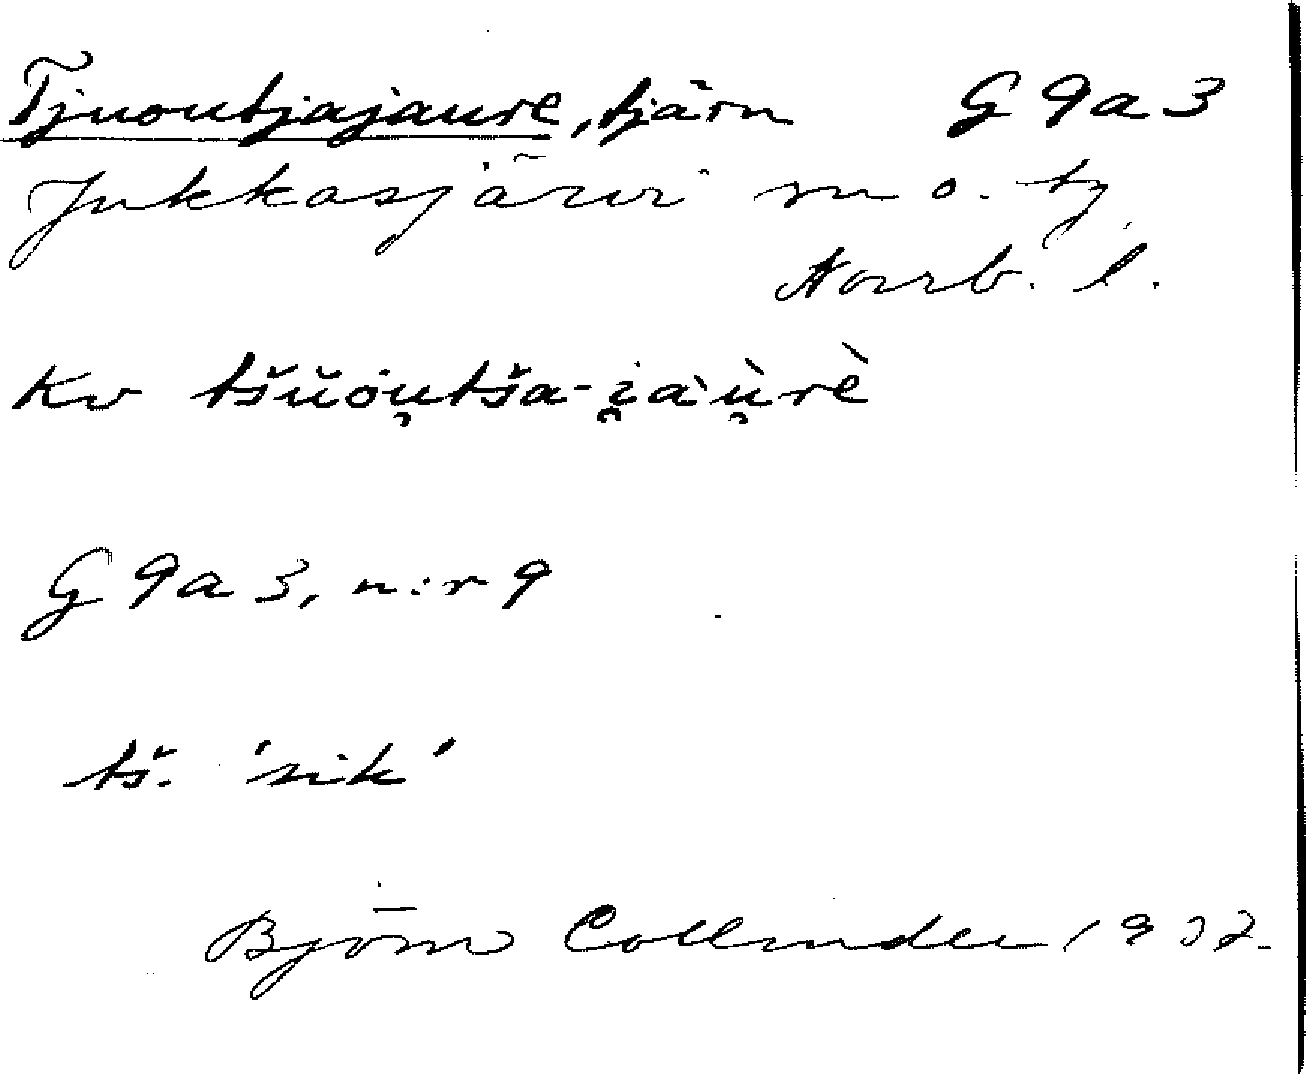 Tjuoutjajaure, tjärn G 9 a 3
Jukkasjärvi sn o. tg
Norrb. l.
Kv tšŭȯu̯tša-i̯àù̯rè
G 9 a 3, n:r 9
tš. 'sik'
Björn Collinder 1932